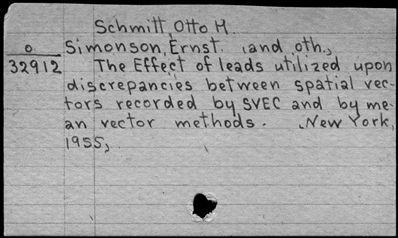 Schmitt, Otto H.
o Simonson, Ernst. and oth.,
32912 The Effect of leads utilized upon
discrepancies between spatial vec-
tors recorded by SVEC and by me-
an vector methods. New York,
1955,